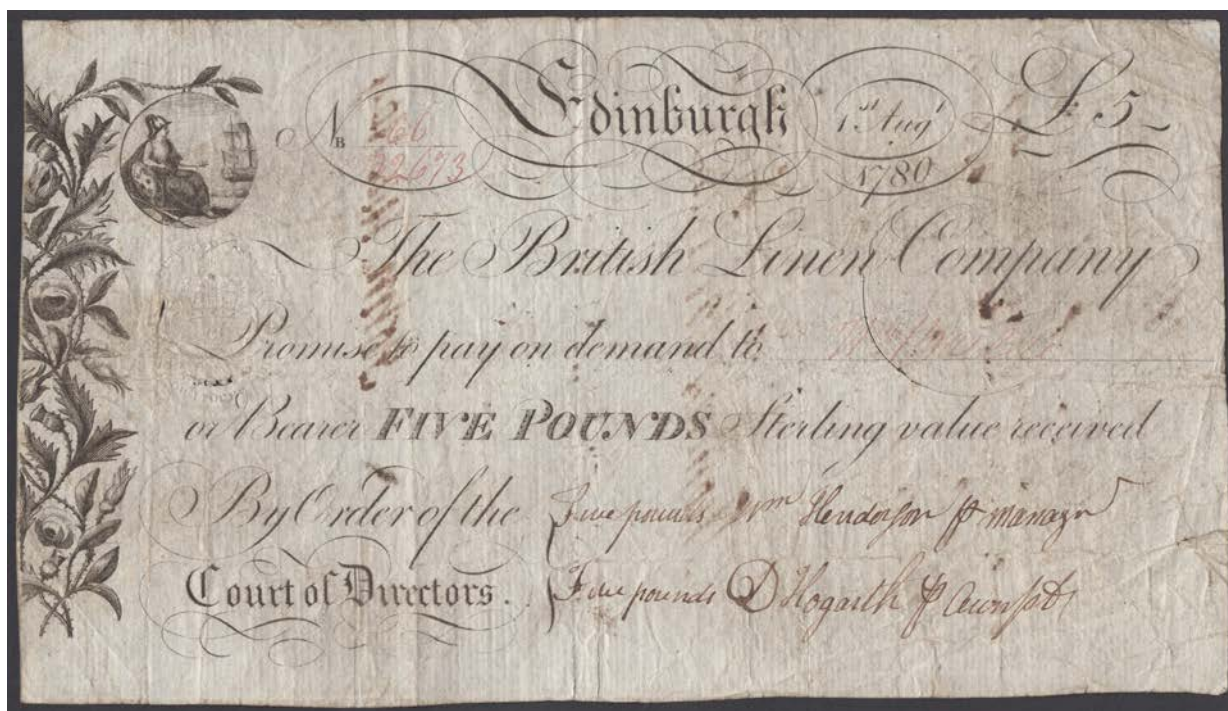 No B 266 Edinburgh 1st Augt £ 5
32673 1780
The British Linen Company
Promise to pay on demand to
or Bearer FIVE POUNDS Sterling value received
By Order of the Five pounds Wm Henderson p manager
Court of Directors. Five pounds D Hogarth p Accompt